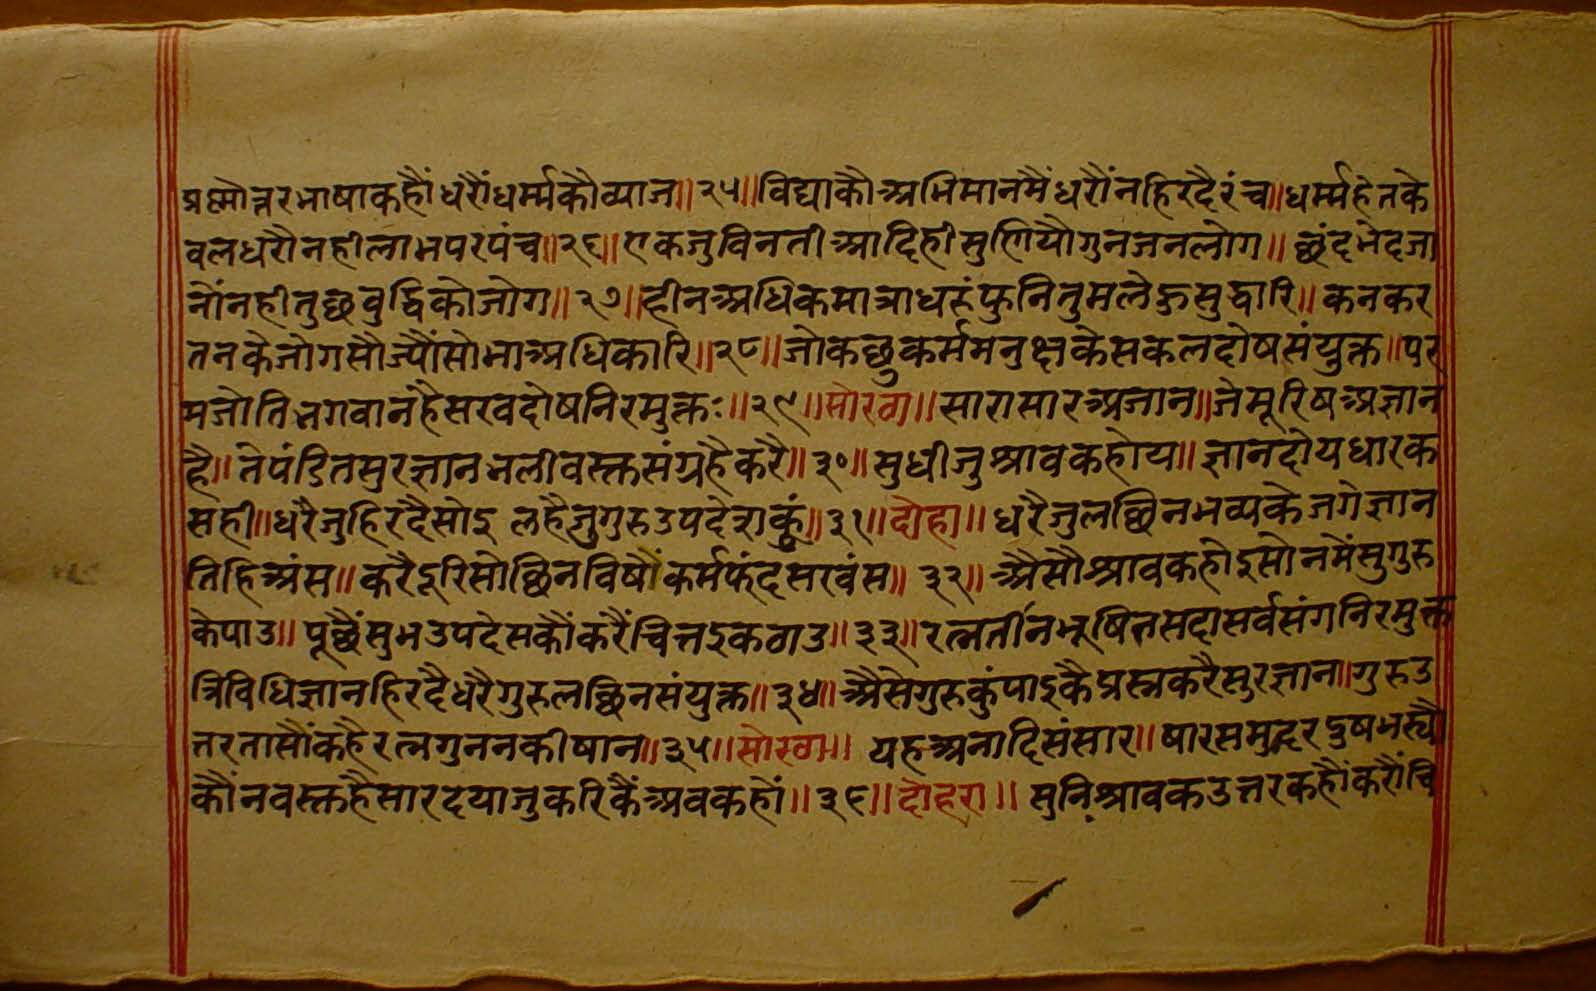 प्रष्णोत्तरभाषाकहौं धरौंधर्म्मकौव्याज॥२५॥विद्याकौअभिमानमैंधरौंनहिरदैरंच॥धर्म्महेतके
वलधरौनहीलाभपरपंच॥२६॥एकजुविनतीआदिहीसुणियौगुनजनलोग॥छंदभेदजा
नौंनहीतुछवुद्धिकोजोग॥२७॥हीनअधिकमात्राधरूंफुनितुमलेऊसुद्धारि॥कनकर
तनकेजोगसौज्यौंसोभाअधिकारि॥२८॥जोकछुकर्ममनुक्षकेसकलदोषसंयुक्त॥पर
मजोतिभगवानहैसरवदोषनिरमुक्तः॥२९॥सोरठा॥सारासारअजान॥जेमूरिषअज्ञान
है॥तेपंडितसुरज्ञानभलीवस्तसंग्रहैकरै॥३०॥सुधीजुश्रावकहोय॥ज्ञानदोयधारक
सही॥धरैजुहिरदैसोइ लहैजुगुरुउपदेशकुं॥३१॥दोहा॥ धरैजुलछिनभव्यकेजगेज्ञान
तिहिअंस॥करैदूरिसोछिनविषैंकर्मफंदसरवंस॥ ३२॥ऐसौश्रावकहोइसोनमैंसुगुरु
केपाउ॥पूछैंसुभउपदेसकौंकरैंचित्तइकठाउ॥३३॥रत्नतीनभूषितसदासर्वसंगनिरमुक्त
त्रिविधिज्ञानहिरदैधरैगुरुलछिनसंयुक्त॥३४॥ऐसेगुरुकुंपाइकैप्रस्नकरैसुरज्ञान॥गुरुउ
त्तरतासौंकहैरत्नगुननकीषान॥३५॥सोरठा॥ यहअनादिसंसार॥षारसमुद्दरदुषभस्यौ
कौंनवस्तहैसारदयाजुकरिकैंअवकहौं॥३६॥दोहरा॥ सुनिश्रावकउत्तरकहौंकरौंचि
www.jainelibrary.org